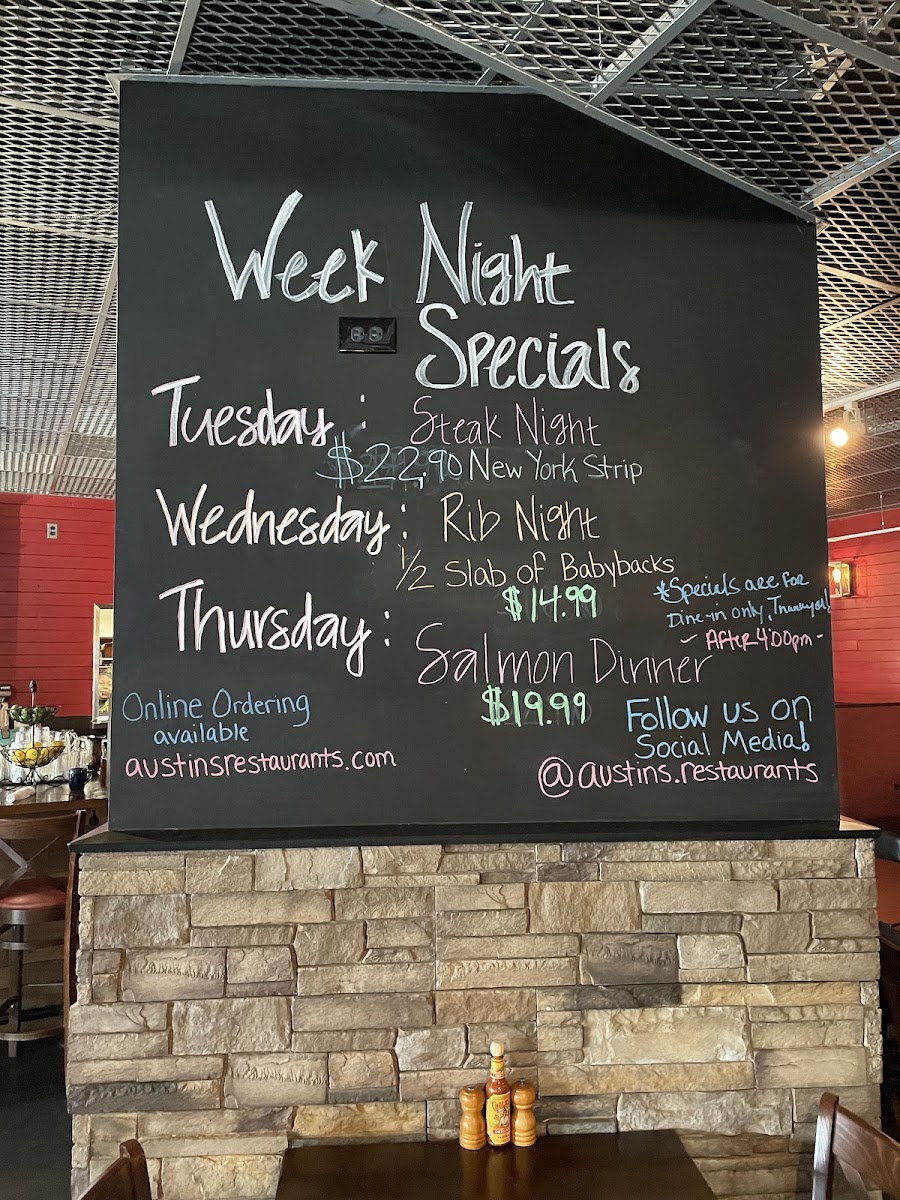 Week Night
Specials
Tuesday : Steak Night
$22.90 New York Strip
Wednesday : Rib Night
1/2 Slab of Babybacks
$14.99
*Specials are for
Dine-in only, Thankyou!
- After 4:00pm -
Thursday : Salmon Dinner
$19.99
Online Ordering
available
austinsrestaurants.com
Follow us on
Social Media!
@austins.restaurants